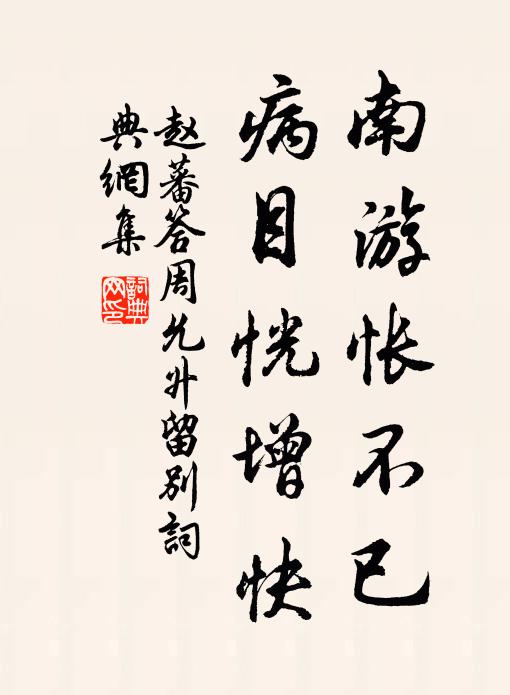 南游怅不已
病目恍增快
赵蕃答周允升留别詞
典網集
詞典网印